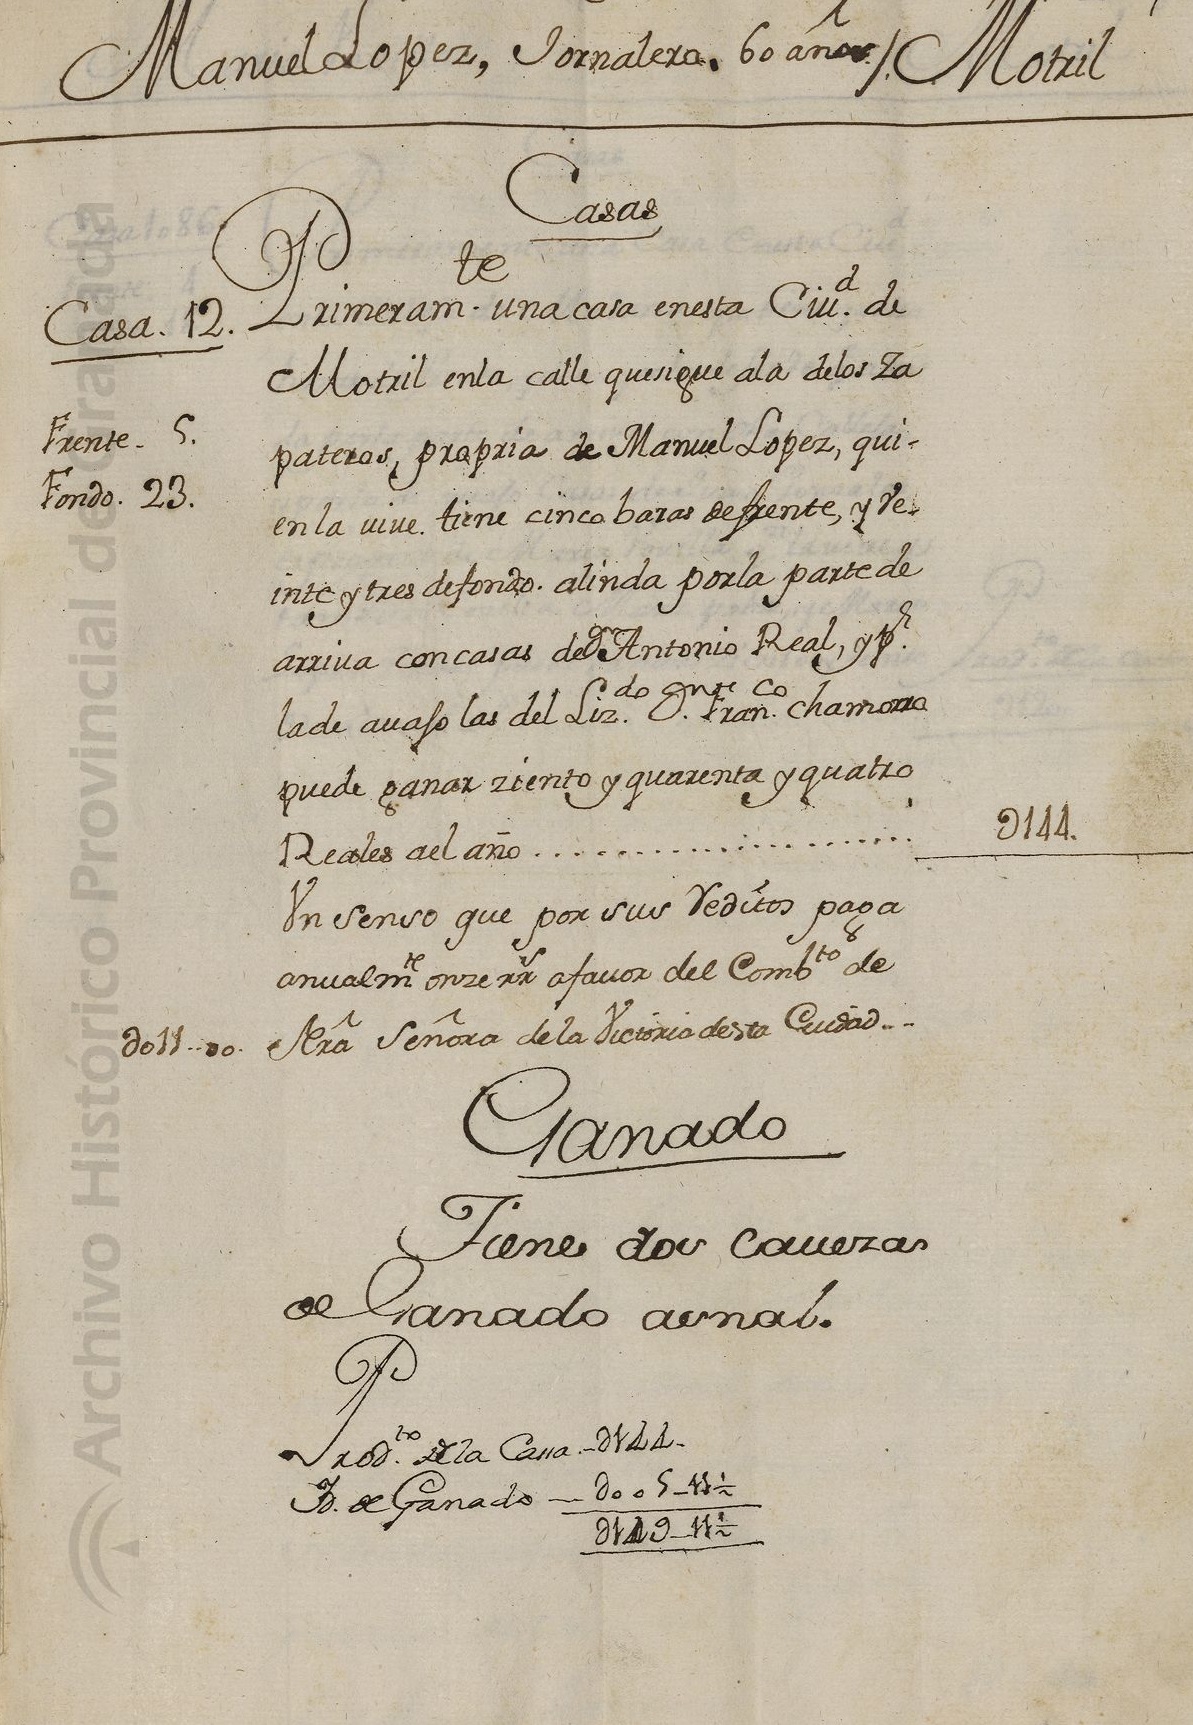 Manuel Lopez, Jornalero. 60 años /. Motril
Casas
Casa. 12. Primeramte. una casa enesta Ciud. de
Motril enla calle quesigue ala delos Za
Frente. 5. pateros, propria de Manuel Lopez, qui-
Fondo. 23. enla vive. tiene cinco baras defrente, y ve-
inte y tres defondo. alinda porla parte de
arriva con casas de Dn Antonio Real, y pr.
lade auajo las del Lizdo. Dn. Franco. chamorro
puede ganar ziento y quarenta y quatro
Reales ael año .................... D144.
Vn senso que por sus reditos paga
anualmte onze rrs afauor del Combto de
Do11..Do. Nrã Señora dela Victoria desta Ciudad...
Ganado
Tiene dos cauezas
de Ganado asnal.
Prodto. de la Casa - D144-
Id. de Ganado — Doo5-11½
D149-11½
Archivo Histórico Provincial de Granada